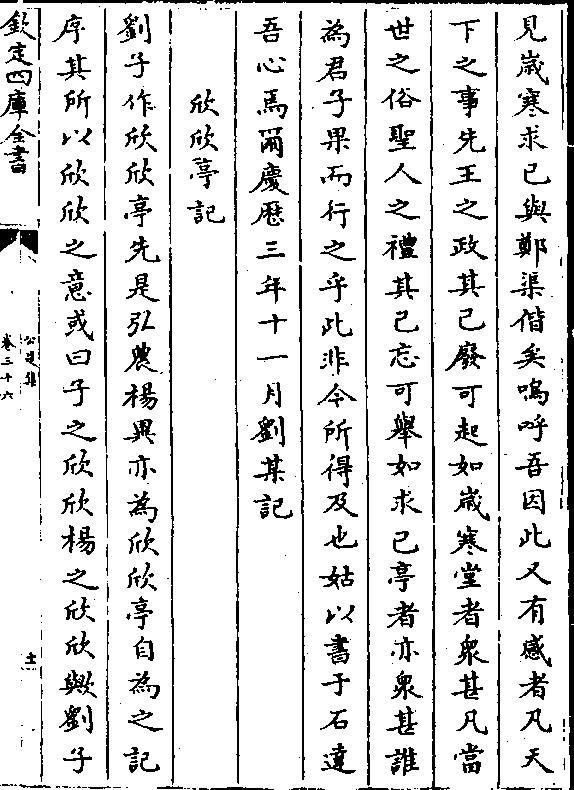 見嵗寒求已與鄭渠偕矣嗚呼吾因此又有感者凡天
下之事先王之政其已廢可起如嵗寒堂者衆甚凡當
世之俗聖人之禮其已忘可舉如求已亭者亦衆甚誰
為君子果而行之乎此非今所得及也姑以書于石達
吾心焉爾慶歴三年十一月劉某記
欣欣亭記
劉子作欣欣亭先是弘農楊異亦為欣欣亭自為之記
序其所以欣欣之意或曰子之欣欣楊之欣欣歟劉子
欽定四庫全書
公是集
卷三十六
十一